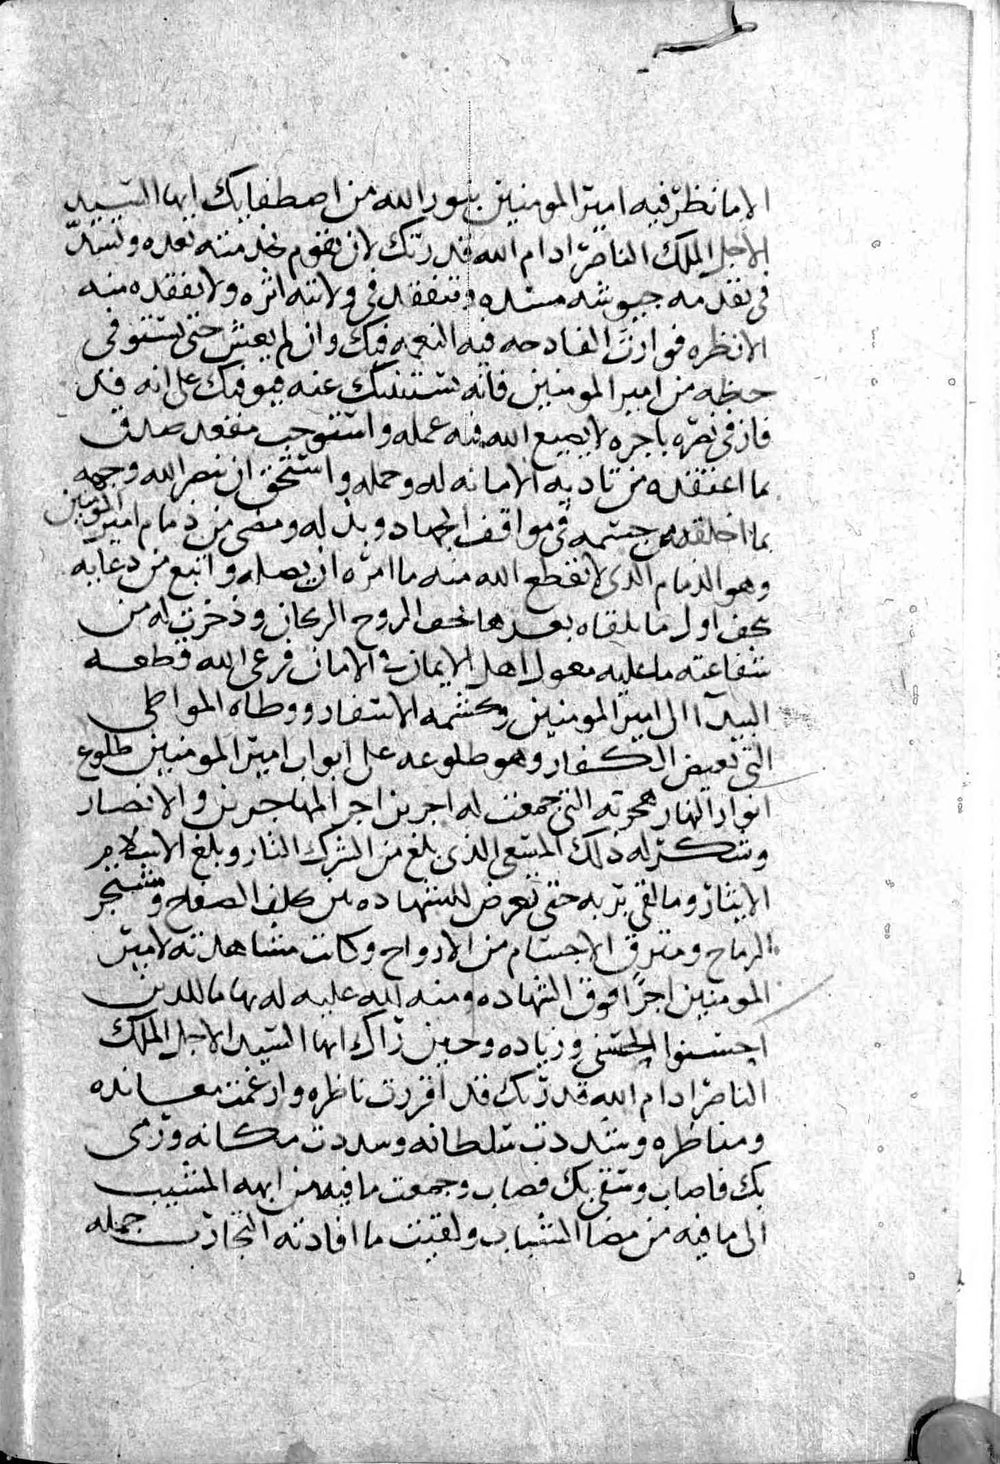 الا ما نظر فيه امير المومنين بنور الله من اصطفايك ايها السيد
الاجل الملك الناصر ادام الله قدرتك لان تقوم بخدمته بعده وتسد
فى تقدمه جيوشه مسده وتقفو فى ولائه اثره ولا تفقده منه
الا نظره فوازت الفادحه فيه النعمه فيك وان لم يعش حتى يستوفى
حظه من امير المومنين فانه استنابك عنه فيوفيك على انه قد
فاز فى نصره باجر لا يضيع الله فيه عمله واستوجب مقعد صدق
بما اعتقده من تاديه الامانه له وحمله واستحق ان ينضر الله وجهه
بما اخلقه من جسمه فى مواقف الجهاد وبذله ومضى من ذمام امير المومنين
وهو الذمام الذى لا يقطع الله منه ما امره ان يصله واتبع من دعايه
بتحف اول ما يلقاه بعدها بتحف الروح والريحان وذخرت له من
شفاعته ما عليه معول اهل الايمان فى الامان فرعى الله قطعه
البيدا الى امير المومنين وتجشمه الاسفار ووطاه المواطى
التى تغيض الكفار وهو طلوعه على ابواب امير المومنين طلوع
انوار النهار هجرته التى جمعت له اجرين اجر المهاجرين والانصار
وشكر له ذلك المسعى الذى بلغ من الشرك الثار وبلغ الاسلام
الايثار وما لقى ربه حتى تعرض للشهاده بين مختلف الصفاح ومشتجر
الرماح ومفترق الاجسام من الارواح وكانت مشاهدته لامير
المومنين اجرا فوق الشهاده ومنه لله عليه له بها ما للذين
احسنوا الحسنى وزياده وحين راك ايها السيد الاجل الملك
الناصر ادام الله قدرتك قد اقررت ناظره وارغمت معانده
ومناظره وشددت سلطانه وسددت مكانه ورمى
بك فاصاب وسقى بك فصاب وجمعت ما فيه من ابهه المشيب
الى ما فيه من مضا الشباب ولقيت ما افادته التجارب جمله